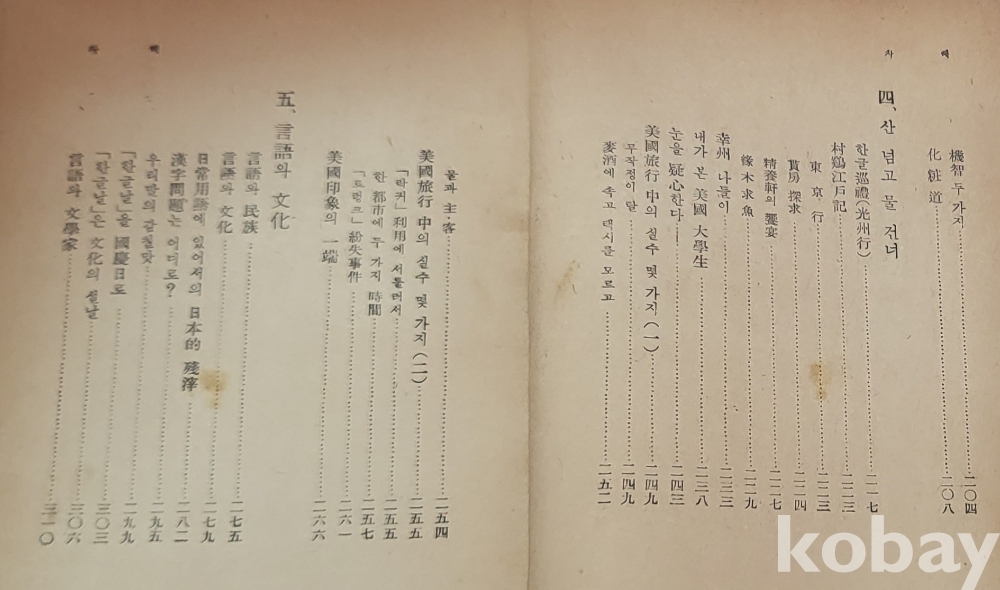 차 례
機智 두 가지……二〇四
化粧道……二〇八
四、산 넘고 물 건너
한글巡禮(光州行)……二一七
村鷄江戶記……二二三
東京行……二二三
貰房探求……二二四
精養軒의 饗宴……二二七
緣木求魚……二二九
幸州 나들이……二三三
내가 본 美國 大學生……二三八
눈을 疑心한다……二四三
美國旅行 中의 실수 몇 가지(一)……二四九
무작정이 탈……二四九
麥酒에 속고 택시를 모르고……二五二
차 례
물과 主·客……二五四
美國旅行 中의 실수 몇 가지(二)……二五五
「락커」利用에 서툴러서……二五五
한 都市에 두 가지 時間……二五七
「트렁크」紛失事件……二六一
美國印象의 一端……二六六
五、言語와 文化
言語와 民族……二七五
言語와 文化……二七九
日常用語에 있어서의 日本的 殘滓……二八二
漢字問題는 어디로?……二九五
우리말의 감칠맛……二九九
「한글날」을 國慶日로……三〇三
「한글날」은 文化의 설날……三〇六
言語와 文學家……三一〇
kobay